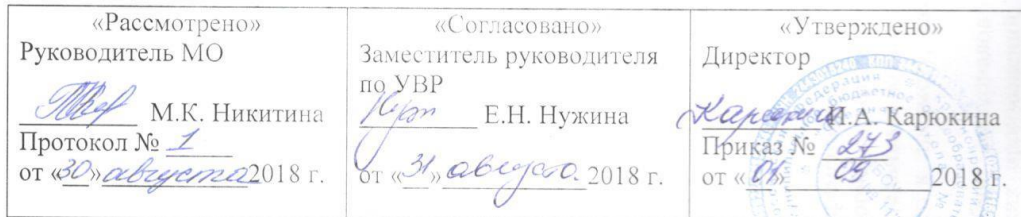 «Рассмотрено»
Руководитель МО
М.К. Никитина
Протокол № 1
от «30» августа 2018 г.
«Согласовано»
Заместитель руководителя
по УВР
Е.Н. Нужина
от «31» августа 2018 г.
«Утверждено»
Директор
И.А. Карюкина
Приказ № 273
от «01» 09 2018 г.